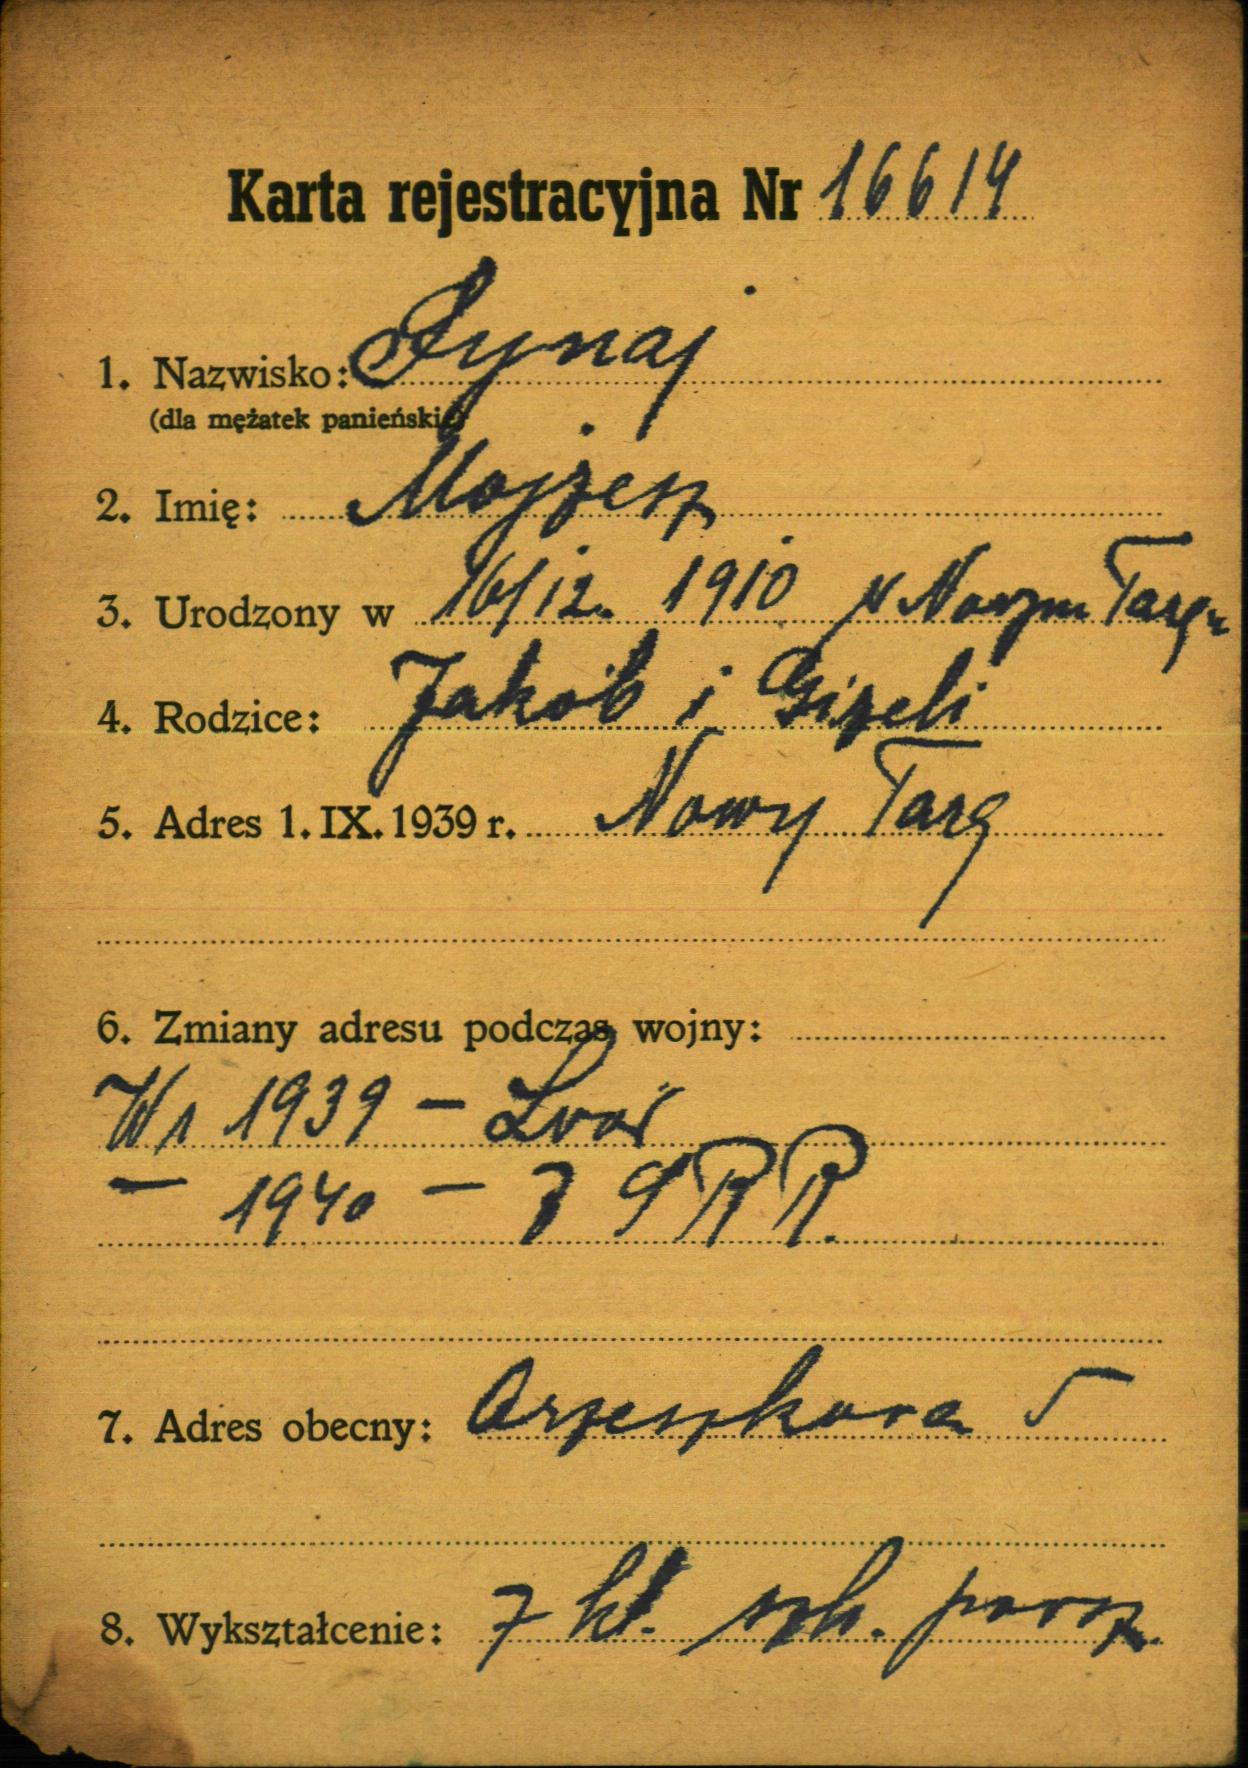 Karta rejestracyjna Nr 16614
1. Nazwisko: Synaj
(dla mężatek panieńskie)
2. Imię: Mojżesz
3. Urodzony w 16/12. 1910 w Nowym Targu
4. Rodzice: Jakób i Gizeli
5. Adres 1. IX. 1939 r. Nowy Targ
6. Zmiany adresu podczas wojny:
W r 1939 – Lwów
– 1940 – Z S R R.
7. Adres obecny: Orzeszkowa 5
8. Wykształcenie: 7 kl. szk. powsz.